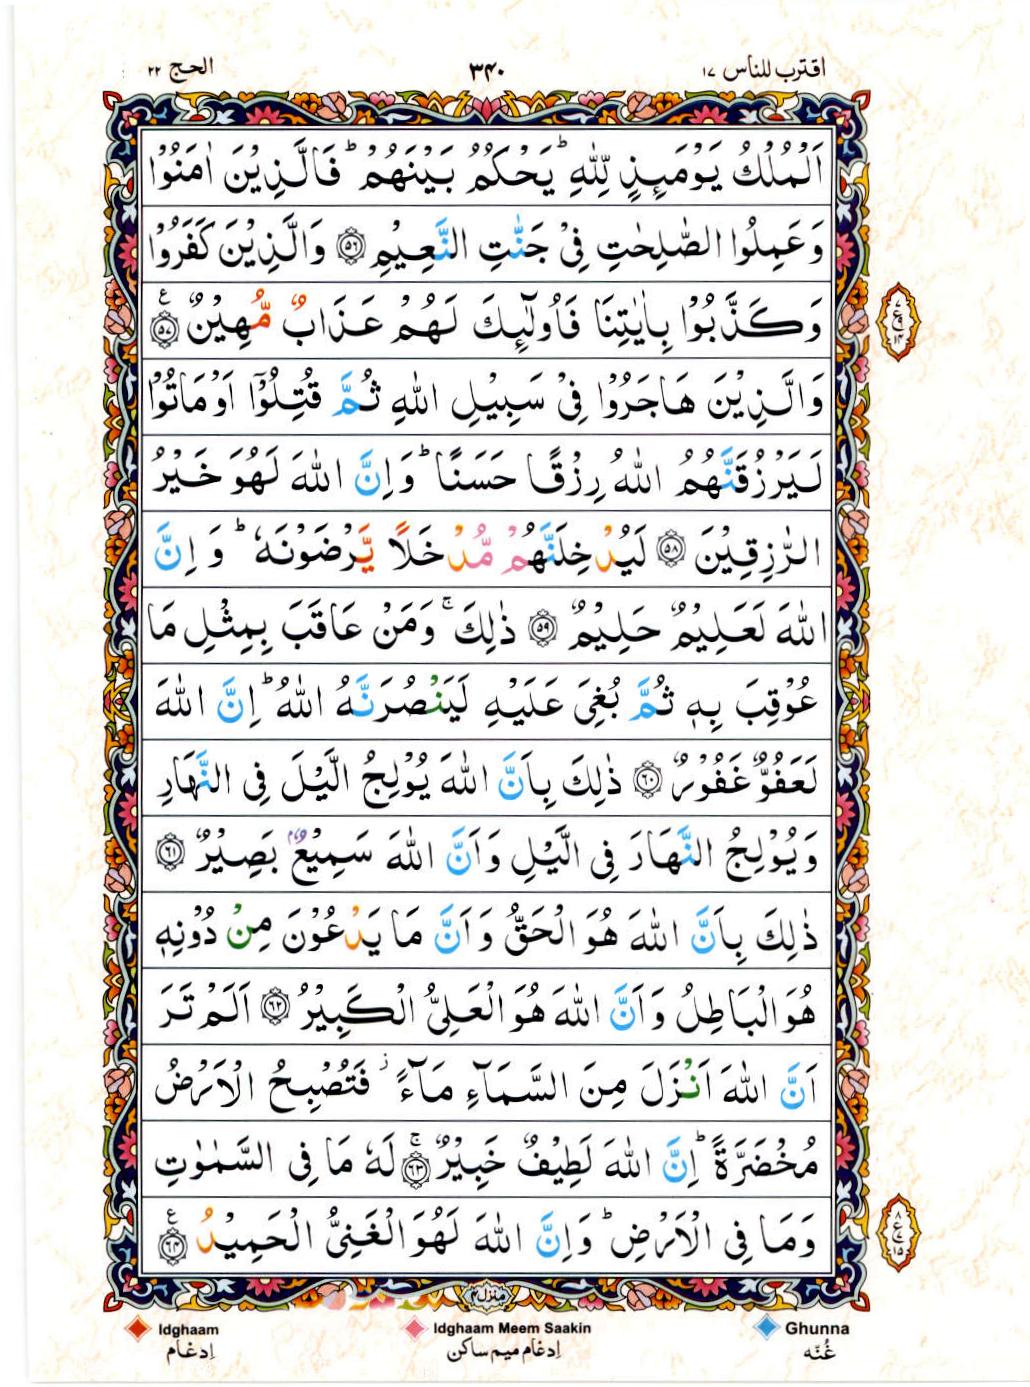 اقترب للناس ١٧ ٣٤٠ الحج ٢٢
اَلْمُلْكُ يَوْمَىِٕذٍ لِّلّٰهِ ؕ يَحْكُمُ بَيْنَهُمْ ؕ فَالَّذِيْنَ اٰمَنُوْا
وَعَمِلُوا الصّٰلِحٰتِ فِيْ جَنّٰتِ النَّعِيْمِ ﴿٥٦﴾ وَالَّذِيْنَ كَفَرُوْا
وَكَذَّبُوْا بِاٰيٰتِنَا فَاُولٰٓىِٕكَ لَهُمْ عَذَابٌ مُّهِيْنٌ ﴿٥٧﴾ ع
وَالَّذِيْنَ هَاجَرُوْا فِيْ سَبِيْلِ اللّٰهِ ثُمَّ قُتِلُوْۤا اَوْ مَاتُوْا
لَيَرْزُقَنَّهُمُ اللّٰهُ رِزْقًا حَسَنًا ؕ وَاِنَّ اللّٰهَ لَهُوَ خَيْرُ
الرّٰزِقِيْنَ ﴿٥٨﴾ لَيُدْخِلَنَّهُمْ مُّدْخَلًا يَّرْضَوْنَهٗ ؕ وَاِنَّ
اللّٰهَ لَعَلِيْمٌ حَلِيْمٌ ﴿٥٩﴾ ذٰلِكَ ۚ وَمَنْ عَاقَبَ بِمِثْلِ مَا
عُوْقِبَ بِهٖ ثُمَّ بُغِيَ عَلَيْهِ لَيَنْصُرَنَّهُ اللّٰهُ ؕ اِنَّ اللّٰهَ
لَعَفُوٌّ غَفُوْرٌ ﴿٦٠﴾ ذٰلِكَ بِاَنَّ اللّٰهَ يُوْلِجُ الَّيْلَ فِي النَّهَارِ
وَيُوْلِجُ النَّهَارَ فِي الَّيْلِ وَاَنَّ اللّٰهَ سَمِيْعٌۢ بَصِيْرٌ ﴿٦١﴾
ذٰلِكَ بِاَنَّ اللّٰهَ هُوَ الْحَقُّ وَاَنَّ مَا يَدْعُوْنَ مِنْ دُوْنِهٖ
هُوَ الْبَاطِلُ وَاَنَّ اللّٰهَ هُوَ الْعَلِيُّ الْكَبِيْرُ ﴿٦٢﴾ اَلَمْ تَرَ
اَنَّ اللّٰهَ اَنْزَلَ مِنَ السَّمَآءِ مَآءً ؗ فَتُصْبِحُ الْاَرْضُ
مُخْضَرَّةً ؕ اِنَّ اللّٰهَ لَطِيْفٌ خَبِيْرٌ ﴿٦٣﴾ۚ لَهٗ مَا فِي السَّمٰوٰتِ
وَمَا فِي الْاَرْضِ ؕ وَاِنَّ اللّٰهَ لَهُوَ الْغَنِيُّ الْحَمِيْدُ ﴿٦٤﴾ ع
٨
ع
١٥
منزل ٤
Idghaam Idghaam Meem Saakin Ghunna
اِدغَام اِدغَام میم ساکن غُنّه